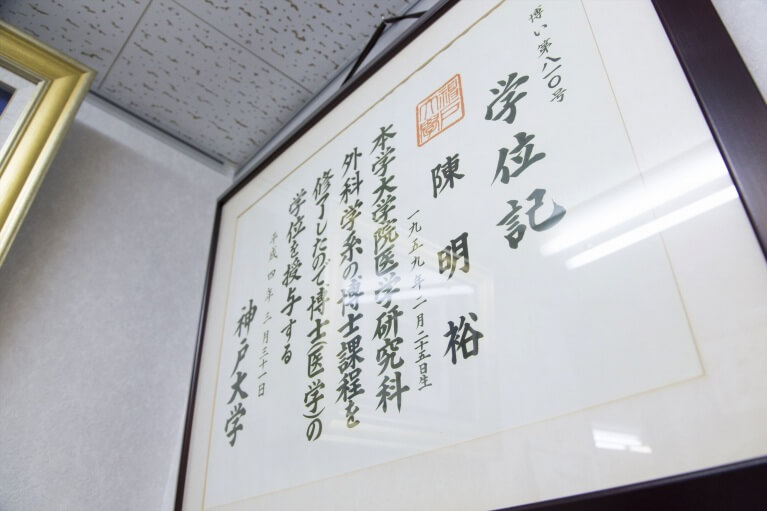 博い第八一〇号
学位記
神戸大学
陳明裕
一九五九年二月二十五日生
本学大学院医学研究科
外科学系の博士課程を
修了したので博士(医学)の
学位を授与する
平成四年三月三十一日
神戸大学